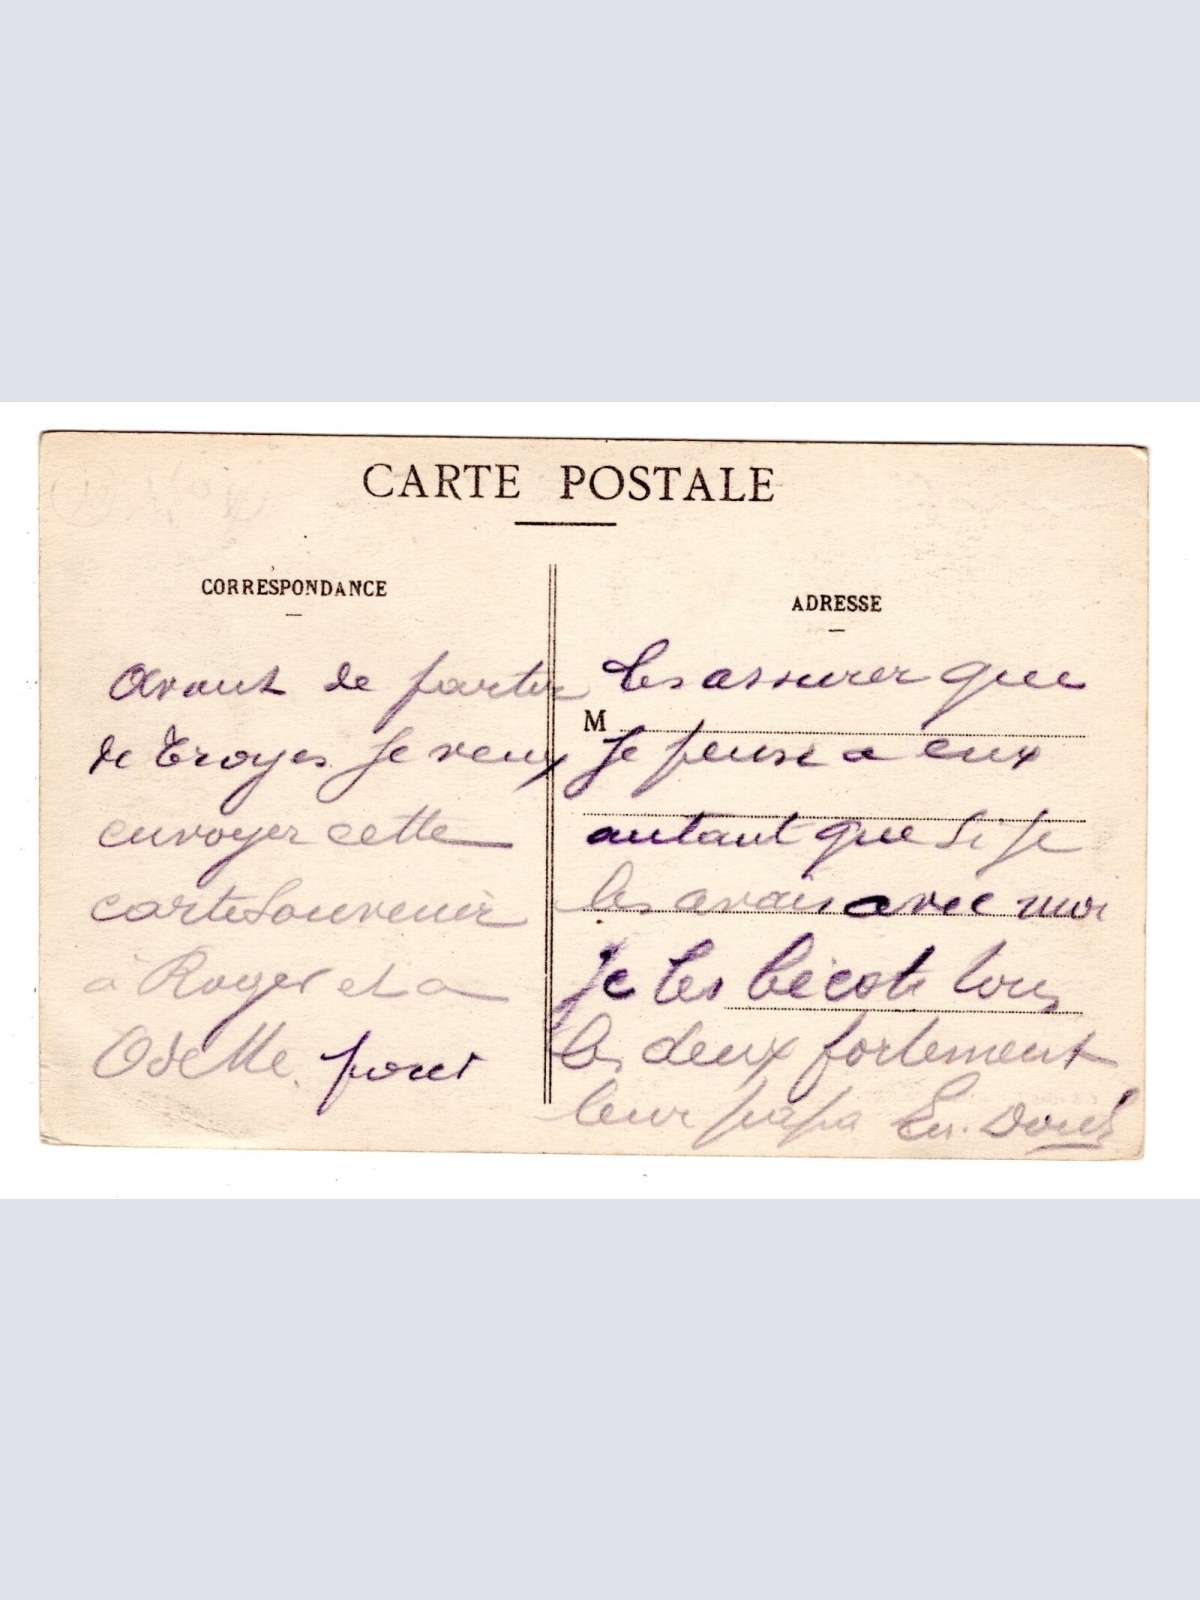 CARTE POSTALE
CORRESPONDANCE
Avant de partir
de Troyes Je veux
envoyer cette
carte Souvenir
à Roger et a
Odette pour
ADRESSE
les assurer que
M
Je pense a eux
autant que Si Je
les avais avec moi
Je les bécote tous
les deux fortement
leur papa